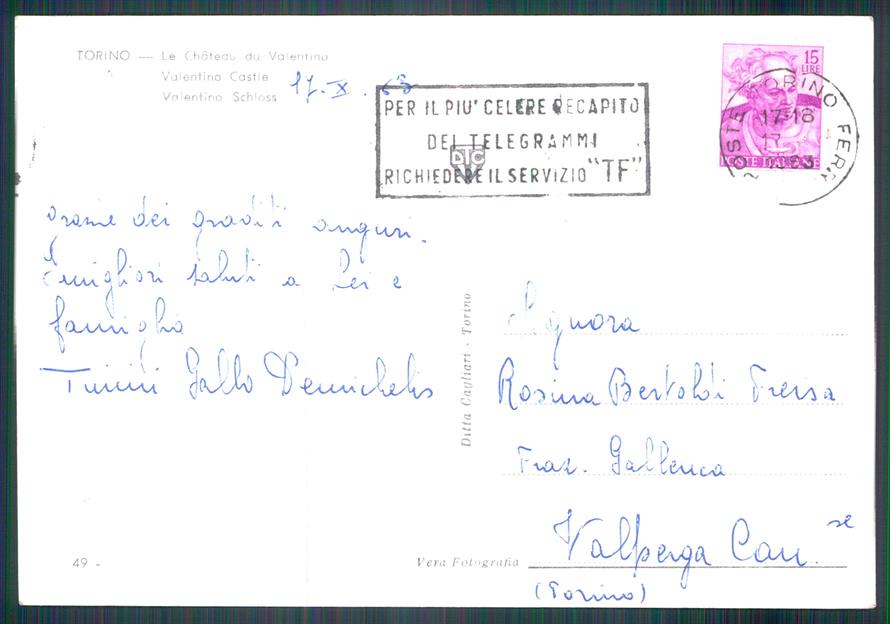 TORINO — Le Château du Valentino
Valentino Castle
Valentino Schloss
17-X.63
PER IL PIU' CELERE RECAPITO
DEI TELEGRAMMI
RICHIEDERE IL SERVIZIO "TF"
DTC
15
LIRE
POSTE ITALIANE
POSTE TORINO FERR
17-18
17
1963
grazie dei graditi auguri.
E migliori saluti a Lei e
famiglia
Gallo Demichelis
Ditta Cagliari - Torino
Signora
Rosina Bertoldi Freisa
Fraz. Gallenca
Valperga Can.se
(Torino)
49 -
Vera Fotografia